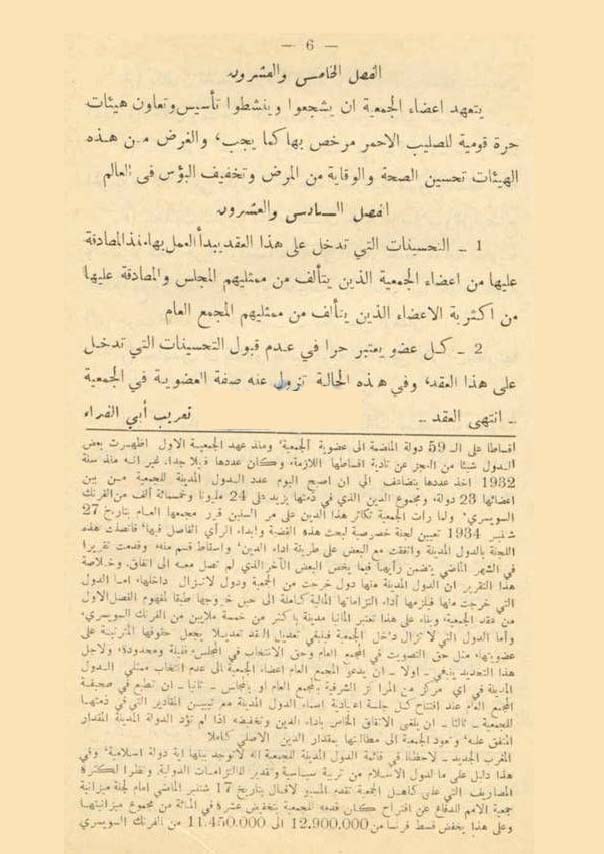 — 6 —
الفصل الخامس والعشرون
يتعهد اعضاء الجمعية ان يشجعوا وينشطوا تأسيس وتعاون هيئات
حرة قومية للصليب الاحمر مرخص بها كما يجب، والغرض من هذه
الهيئات تحسين الصحة والوقاية من المرض وتخفيف البؤس في العالم
الفصل السادس والعشرون
1 _ التحسينات التي تدخل على هذا العقد يبدأ العمل بها منذ المصادقة
عليها من اعضاء الجمعية الذين يتألف من ممثليهم المجلس والمصادقة عليها
من اكثرية الاعضاء الذين يتألف من ممثليهم المجمع العام
2 _ كل عضو يعتبر حرا في عدم قبول التحسينات التي تدخل
على هذا العقد، وفي هذه الحالة تزول عنه صفة العضوية في الجمعية
_ انتهى العقد _ تعريب أبي الفداء
أقساطا على الـ 59 دولة المنضمة الى عضوية الجمعية، ومنذ عهد الجمعية الاول اظهرت بعض
الدول شيئا من العجز عن تادية اقساطها اللازمة، وكان عددها قليلا جدا، غير انه منذ سنة
1932 اخذ عددها يتضاعف الى ان اصبح اليوم عدد الدول المدينة للجمعية من بين
اعضائها 23 دولة، ومجموع الدين الذي في ذمتها يزيد على 24 مليونا وخمسمائة ألف من الفرنك
السويسري، ولما رأت الجمعية تكاثر هذا الدين على مر السنين قرر مجمعها العام بتاريخ 27
شتنبر 1934 تعيين لجنة خصوصية لبحث هذه القضية وابداء الرأي الفاصل فيها، فاتصلت هذه
اللجنة بالدول المدينة واتفقت مع البعض على طريقة اداء الدين، واسقاط قسم منه، وقدمت تقريرا
في الشهر الماضي يتضمن رأيها فيما يخص البعض الآخر الذي لم تصل معه الى اتفاق، وخلاصة
هذا التقرير ان الدول المدينة منها دول خرجت من الجمعية ودول لاتزال داخلها، اما الدول
التي خرجت منها فيلزمها أداء التزاماتها المالية كاملة الى حين خروجها طبقا لمفهوم الفصل الاول
من عقد الجمعية، وبناء على هذا تعتبر المانيا مدينة باكثر من خمسة ملايين من الفرنك السويسري،
وأما الدول التي لاتزال داخل الجمعية فينبغي تعديل العقد تعديلا يجعل حقوقها المترتبة على
عضويتها، مثل حق التصويت في المجمع العام وحق الانتخاب في المجلس، قليلة ومحدودة، ولاجل
هذا التحديد ينبغي _ اولا _ ان يدعو المجمع العام اعضاء الجمعية الى عدم انتخاب ممثلي الدول
المدينة في اي مركز من المراكز الشرفية بالمجمع العام او بالمجلس _ ثانيا _ ان تطبع في صحيفة
المجمع العام عند افتتاح كل جلسة اعتيادية اسماء الدول المدينة مع تبيين المقادير التي في ذمتها
للجمعية _ ثالثا _ ان يلغى الاتفاق الخاص باداء الدين وتخفيضه اذا لم تؤد الدولة المدينة المقدار
المتفق عليه، وتعود الجمعية الى مطالبتها بمقدار الدين الاصلي كاملا
المغرب الجديد _ لاحظنا في قائمة الدول المدينة للجمعية انه لا توجد بينها أية دولة اسلامية، وفي
هذا دليل على ما لدول الاسلام من تربية سياسية وتقدير للالتزامات الدولية، ونظرا لكثرة
المصاريف التي على كاهل الجمعية تقدم المسيو لافال بتاريخ 17 شتنبر الماضي امام لجنة ميزانية
جمعية الامم للدفاع عن اقتراح كان قدمه للجمعية بتخفيض عشرة في المائة من مجموع ميزانيتها
وعلى هذا يخفض قسط فرنسا من 12.900.000 الى 11.450.000 من الفرنك السويسري